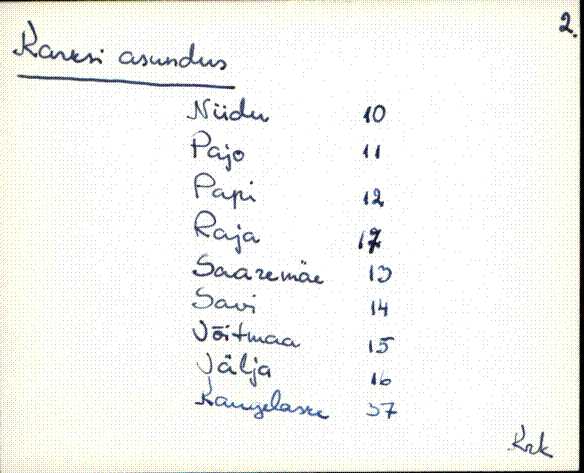 2.
Karksi asundus
Niidu 10
Pajo 11
Papi 12
Raja 17
Saaremäe 13
Savi 14
Võitmaa 15
Välja 16
37
Krk